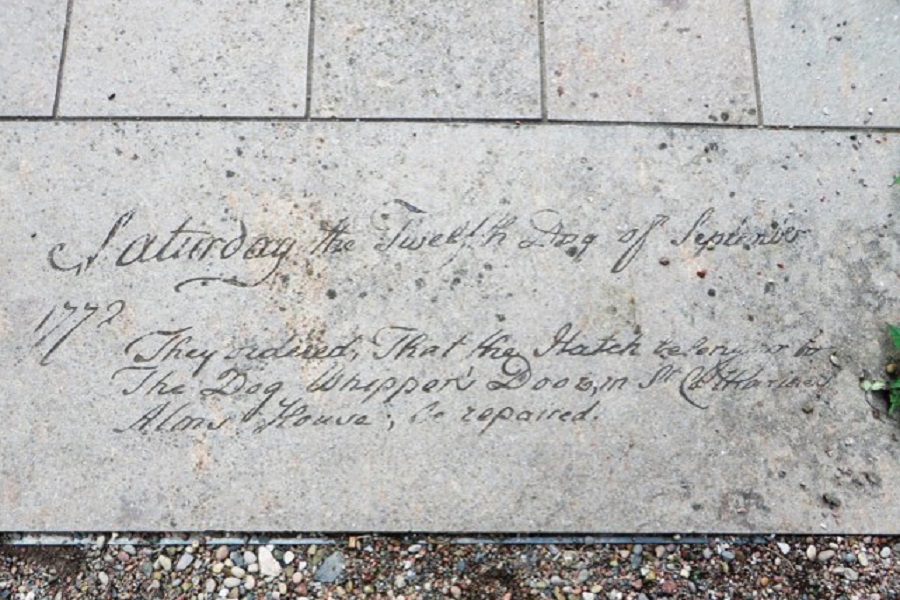 Saturday the Twelfth Day of September
1772
They ordered, That the Hatch belonging to
The Dog Whipper's Door, in St Catharines
Alms House; be repaired.